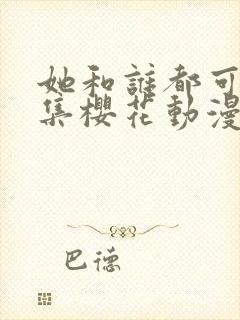 她和誰都可
集櫻花動漫
巴德